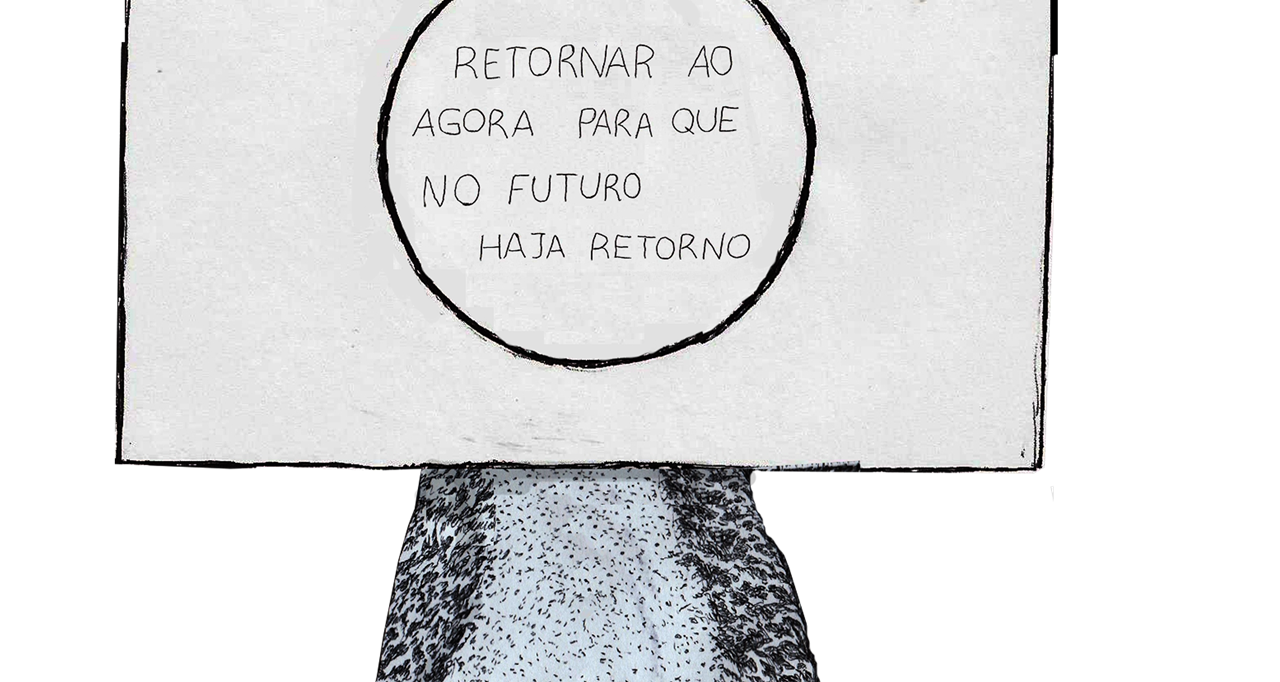 RETORNAR AO
AGORA PARA QUE
NO FUTURO
HAJA RETORNO